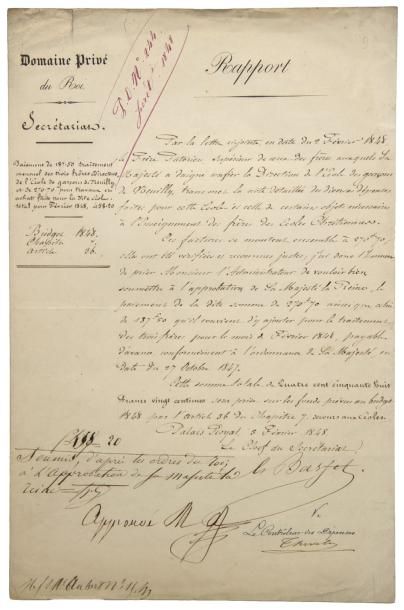 Domaine Privé
du Roi.
Secrétariat.
Paiement de 187.50 traitement
mensuel des trois frères Directeurs
de l'Ecole de garçons de Neuilly,
et de 270.70 pour travaux et
achats faits pour la dite Ecole:
total pour Février 1848, 458.20
Budget 1848.
Chapitre 7.
article 36.
Rapport
Par la lettre ci-jointe, en date du 2 Février 1848
le frère supérieur de ceux des frères auxquels Sa
Majesté a daigné confier la Direction de l'Ecole des garçons
de Neuilly, transmet la note détaillée des diverses dépenses
faites pour cette Ecole et celle de certains objets nécessaires
à l'Enseignement des frères des Ecoles Chrétiennes.
Ces factures se montent ensemble à 270.f 70,
elles ont été vérifiées et reconnues justes, j'ai donc l'honneur
de prier Monsieur l'Administrateur de vouloir bien
soumettre à l'approbation de Sa Majesté la Reine, le
paiement de la dite somme de 270.f 70 ainsi que celui
de 187.f 50 qu'il convient d'y ajouter pour le traitement
des trois frères pour le mois de Février 1848, payable
d'avance conformément à l'ordonnance de Sa Majesté, en
date du 27 Octobre 1847.
Cette somme totale de Quatre cent cinquante huit
francs vingt centimes sera prise sur les fonds prévus au budget
1848 par l'article 36 du Chapitre 7. secours aux écoles.
Palais Royal 8 Février 1848.
Le Chef du Secrétariat
458 20
Soumis, d'après les ordres du Roi,
à l'Approbation de Sa Majesté la
Reine
Approuvé M A
V.
Le Contrôleur des Dépenses